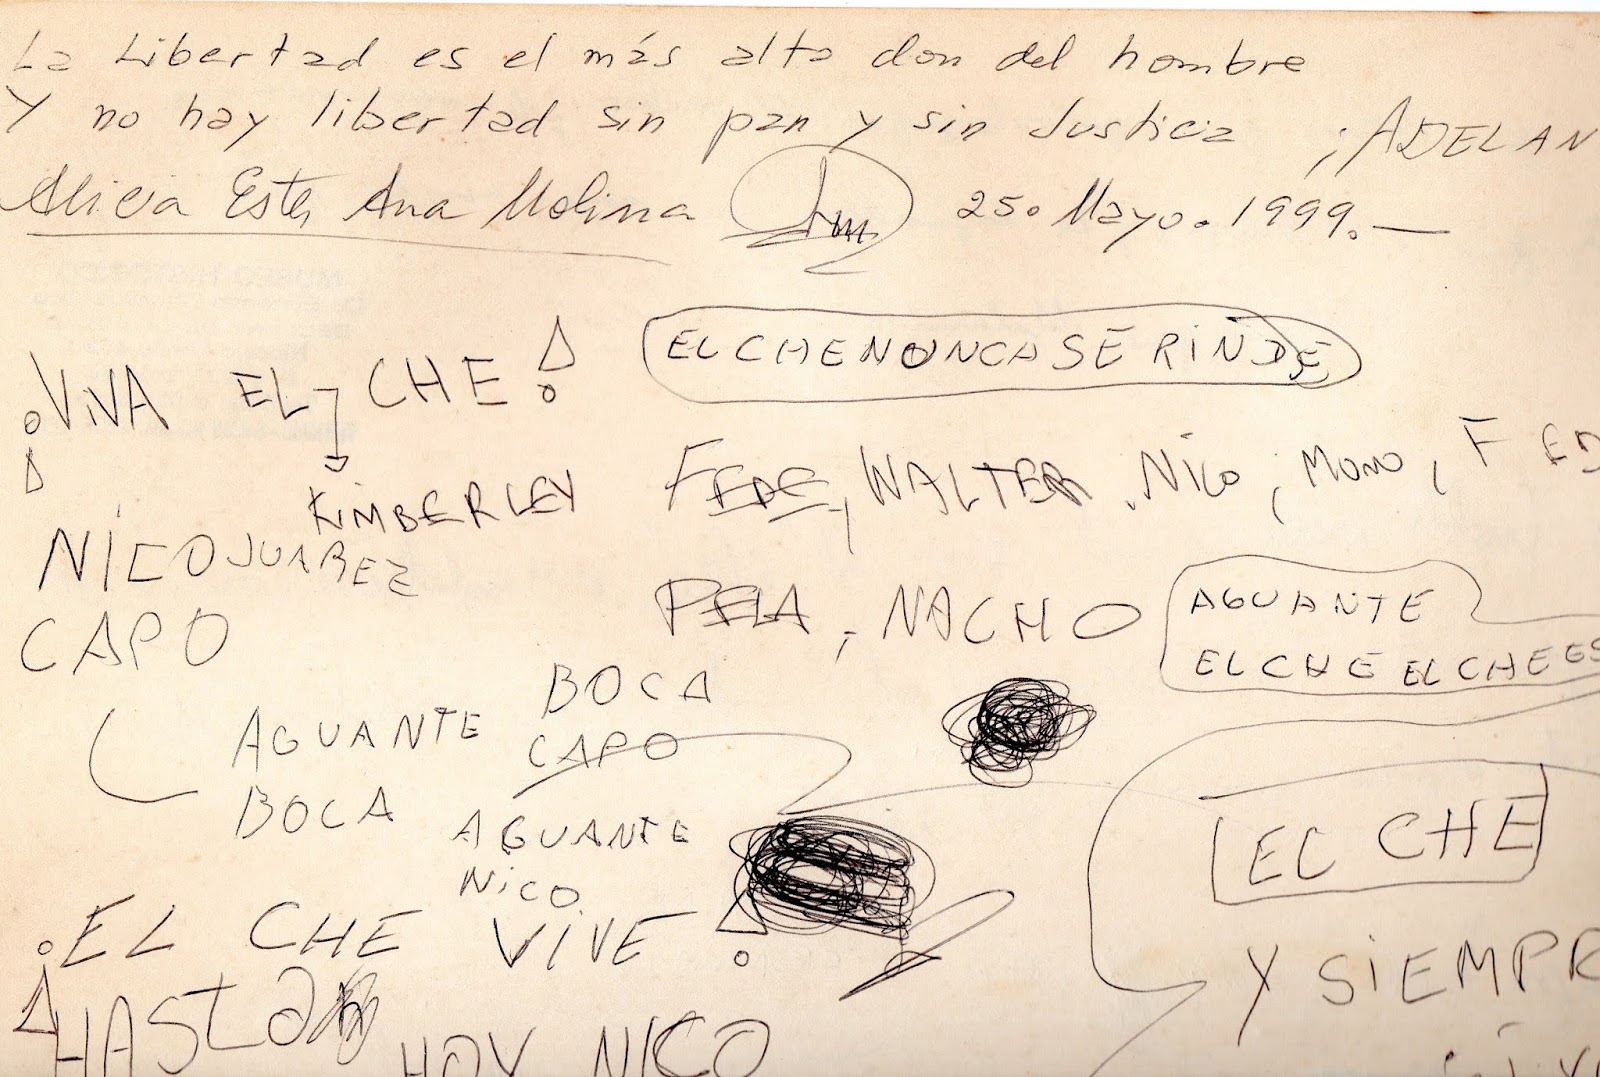 La Libertad es el más alto don del hombre
Y no hay libertad sin pan y sin Justicia ¡ADELAN
Alicia Ester Ana Molina 25. Mayo. 1999.—
¡VIVA EL CHE!
EL CHE NUNCA SE RINDE
KIMBERLEY
FEDE, WALTER, NICO, MONO, FED
NICO JUAREZ
CAPO
PELA, NACHO
AGUANTE
EL CHE EL CHE ES
BOCA
CAPO
AGUANTE
BOCA
AGUANTE
NICO
EL CHE
¡EL CHE VIVE!
Y SIEMPR
HASTA
HOY NICO